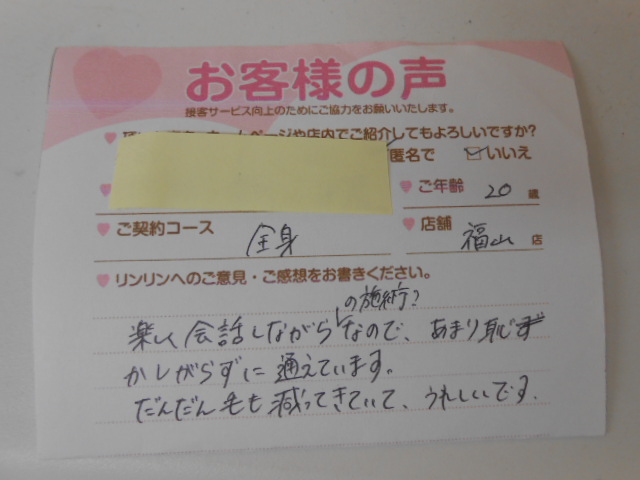 お客様の声
接客サービス向上のためにご協力をお願いいたします。
ページや店内でご紹介してもよろしいですか?
匿名で いいえ
ご年齢 20 歳
ご契約コース 全身
店舗 福山 店
リンリンへのご意見・ご感想をお書きください。
の施術?
楽しく会話しながらなので、あまり恥ず
かしがらずに通えています。
だんだん毛も減ってきていて、うれしいです。